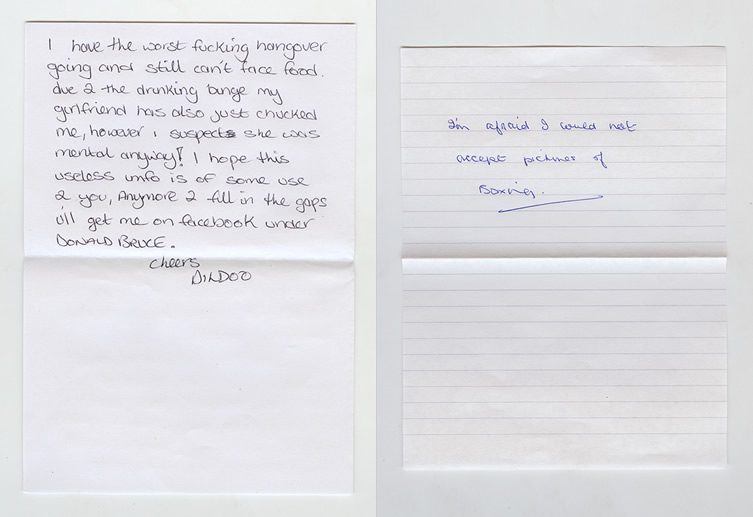 I have the worst fucking hangover
going and still can't face food.
due 2 the drinking binge my
girlfriend has also just chucked
me, however i suspects she was
mental anyway! I hope this
useless info is of some use
2 you, Anymore 2 fill in the gaps
i'll get me on facebook under
DONALD BRUCE.
cheers
DILDOO
I'm afraid I could not
accept pictures of
Boxing.